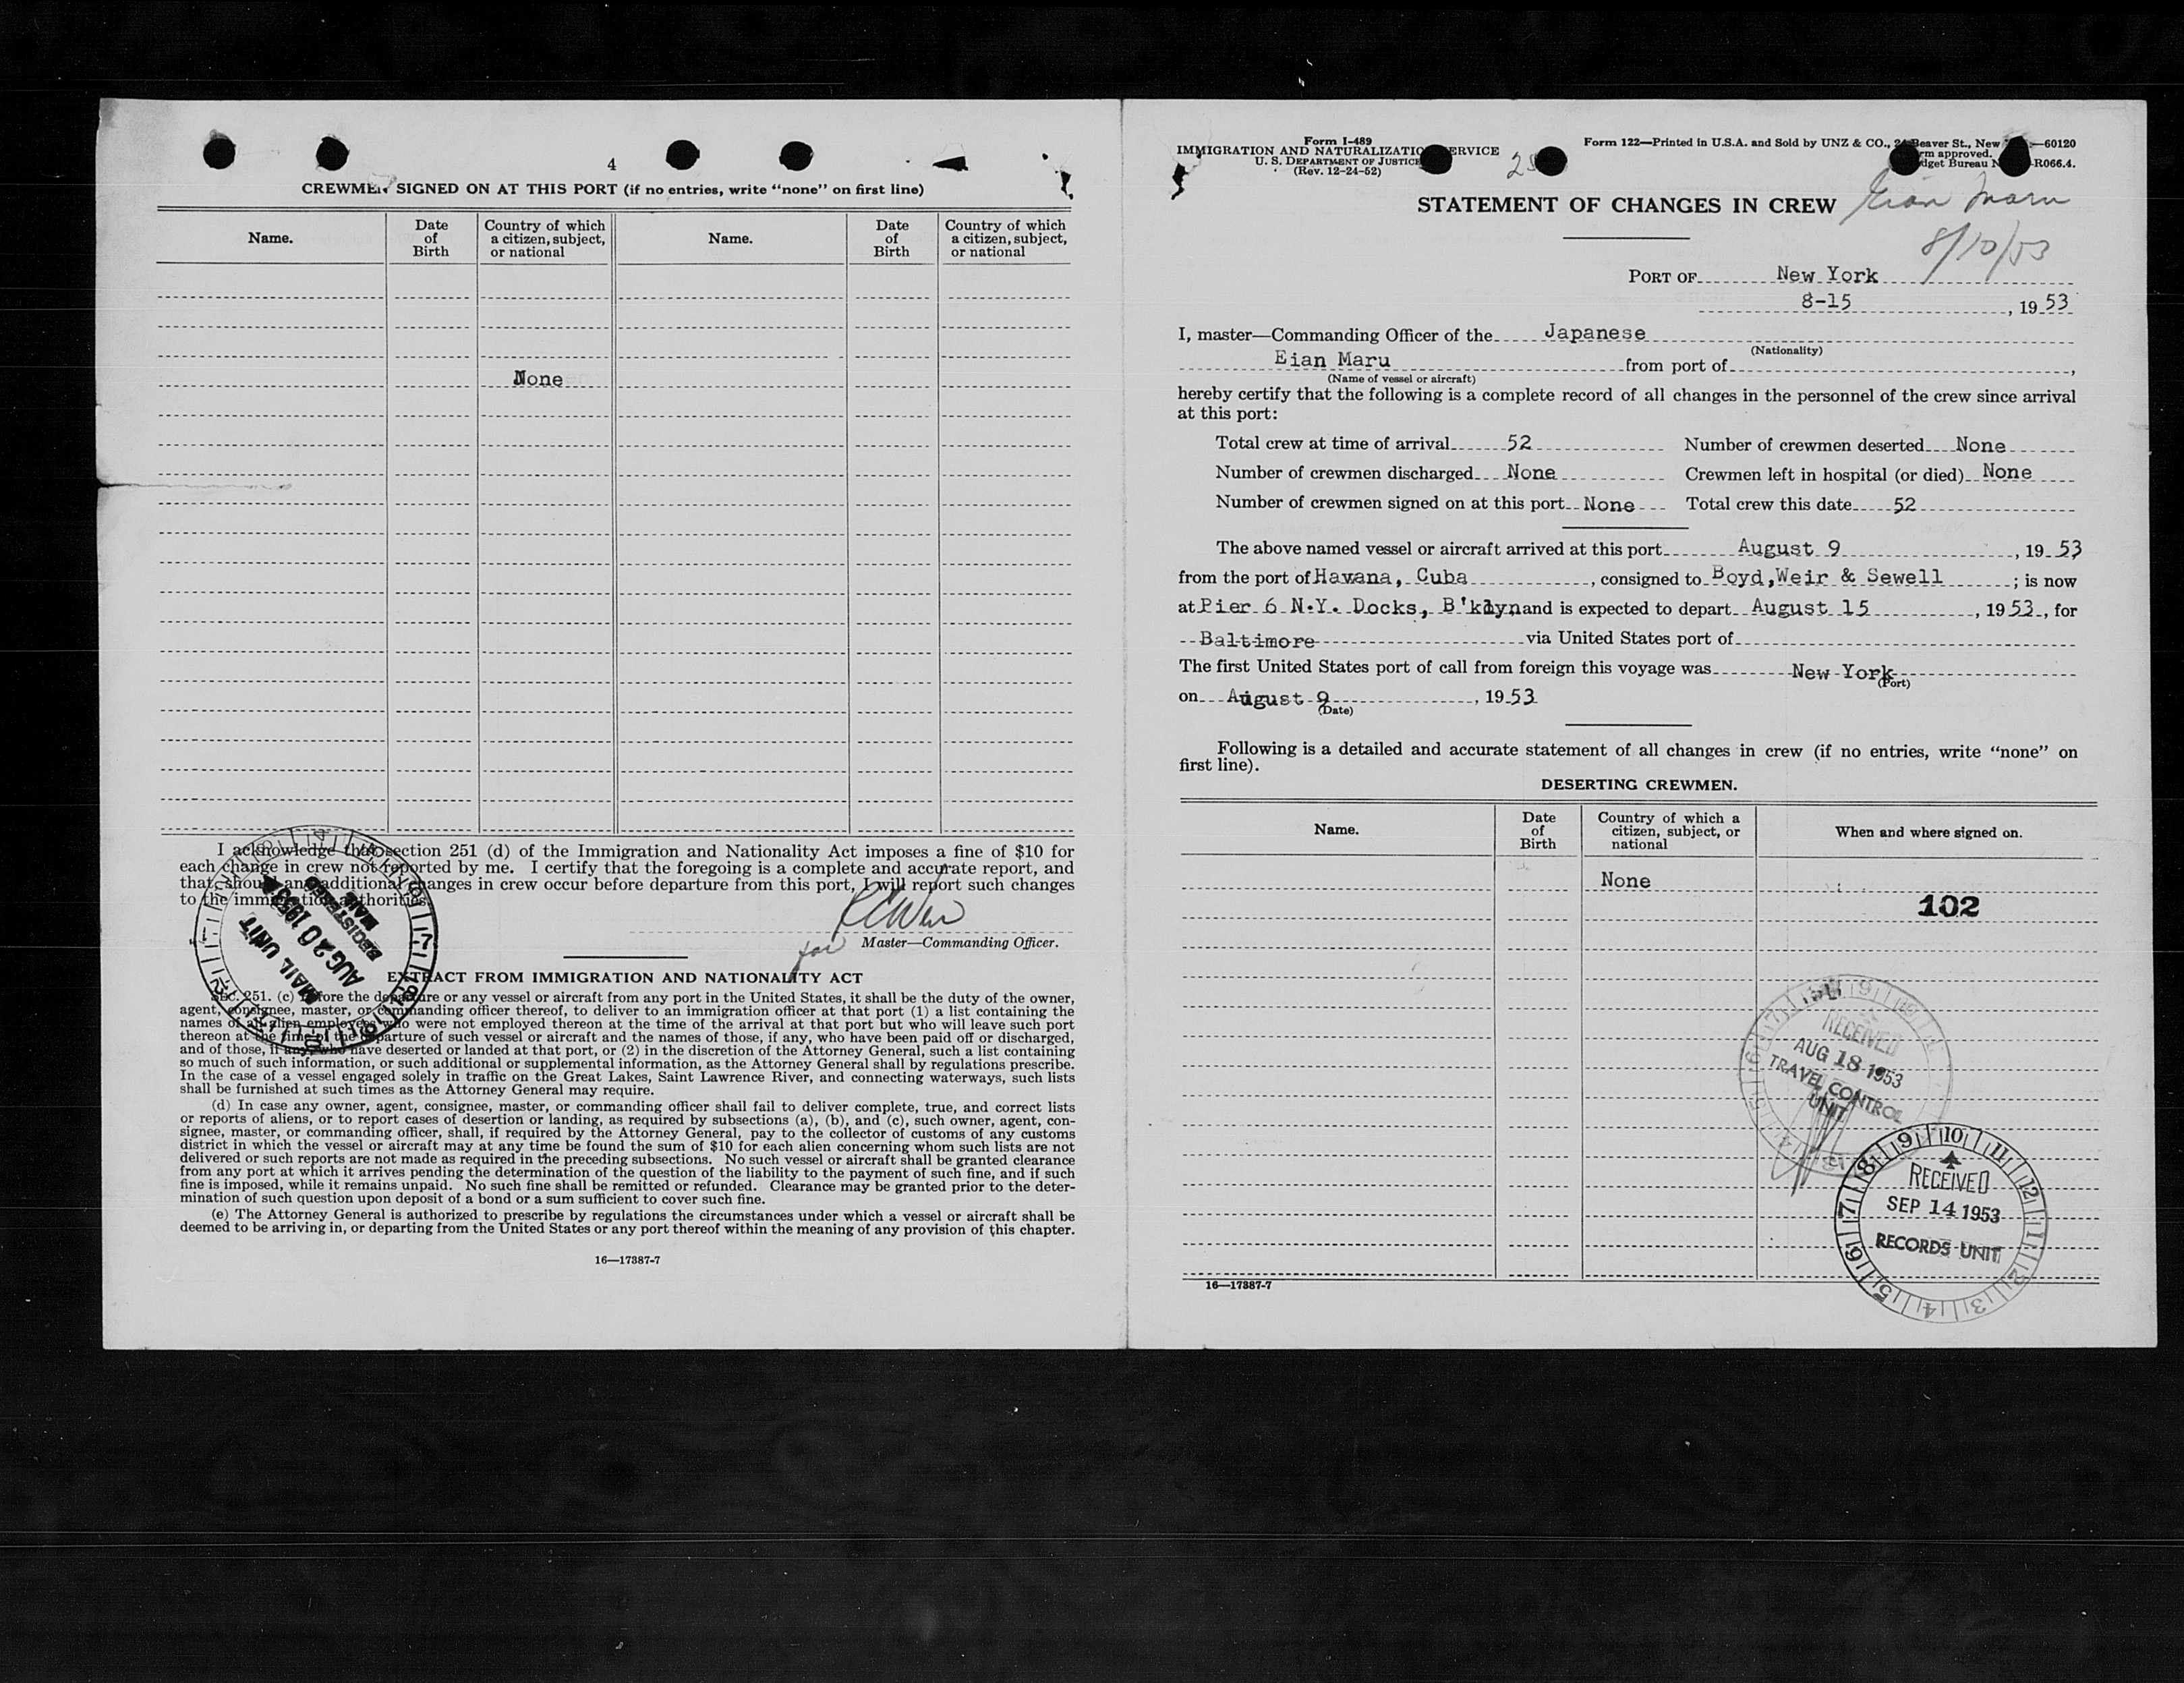 4
CREWMEN SIGNED ON AT THIS PORT (if no entries, write “none” on first line)
Name.
Date of Birth
Country of which a citizen, subject, or national
Name.
Date of Birth
Country of which a citizen, subject, or national
None
I acknowledge that section 251 (d) of the Immigration and Nationality Act imposes a fine of $10 for
each change in crew not reported by me. I certify that the foregoing is a complete and accurate report, and
that, should any additional changes in crew occur before departure from this port, I will report such changes
to the immigration authorities.
for Master—Commanding Officer.
MAIL UNIT
AUG 20 1953
REGISTERED
MAIL
EXTRACT FROM IMMIGRATION AND NATIONALITY ACT
SEC. 251. (c) Before the departure or any vessel or aircraft from any port in the United States, it shall be the duty of the owner,
agent, consignee, master, or commanding officer thereof, to deliver to an immigration officer at that port (1) a list containing the
names of all alien employees who were not employed thereon at the time of the arrival at that port but who will leave such port
thereon at the time of the departure of such vessel or aircraft and the names of those, if any, who have been paid off or discharged,
and of those, if any, who have deserted or landed at that port, or (2) in the discretion of the Attorney General, such a list containing
so much of such information, or such additional or supplemental information, as the Attorney General shall by regulations prescribe.
In the case of a vessel engaged solely in traffic on the Great Lakes, Saint Lawrence River, and connecting waterways, such lists
shall be furnished at such times as the Attorney General may require.
(d) In case any owner, agent, consignee, master, or commanding officer shall fail to deliver complete, true, and correct lists
or reports of aliens, or to report cases of desertion or landing, as required by subsections (a), (b), and (c), such owner, agent, con-
signee, master, or commanding officer, shall, if required by the Attorney General, pay to the collector of customs of any customs
district in which the vessel or aircraft may at any time be found the sum of $10 for each alien concerning whom such lists are not
delivered or such reports are not made as required in the preceding subsections. No such vessel or aircraft shall be granted clearance
from any port at which it arrives pending the determination of the question of the liability to the payment of such fine, and if such
fine is imposed, while it remains unpaid. No such fine shall be remitted or refunded. Clearance may be granted prior to the deter-
mination of such question upon deposit of a bond or a sum sufficient to cover such fine.
(e) The Attorney General is authorized to prescribe by regulations the circumstances under which a vessel or aircraft shall be
deemed to be arriving in, or departing from the United States or any port thereof within the meaning of any provision of this chapter.
16—17387-7
Form I-489
IMMIGRATION AND NATURALIZATION SERVICE
U. S. DEPARTMENT OF JUSTICE
(Rev. 12-24-52)
Form 122—Printed in U.S.A. and Sold by UNZ & CO., 24 Beaver St., New —60120
Form approved.
Budget Bureau N R066.4.
STATEMENT OF CHANGES IN CREW Eian Maru
8/10/53
PORT OF New York
8-15, 1953
I, master—Commanding Officer of the Japanese
(Nationality)
Eian Maru from port of ,
(Name of vessel or aircraft)
hereby certify that the following is a complete record of all changes in the personnel of the crew since arrival
at this port:
Total crew at time of arrival 52 Number of crewmen deserted None
Number of crewmen discharged None Crewmen left in hospital (or died) None
Number of crewmen signed on at this port None Total crew this date 52
The above named vessel or aircraft arrived at this port August 9, 1953
from the port of Havana, Cuba, consigned to Boyd,Weir & Sewell; is now
at Pier 6 N.Y. Docks, B'klyn and is expected to depart August 15, 1953, for
Baltimore via United States port of
The first United States port of call from foreign this voyage was New York
(Port)
on August 9, 1953
(Date)
Following is a detailed and accurate statement of all changes in crew (if no entries, write “none” on
first line).
DESERTING CREWMEN.
Name.
Date of Birth
Country of which a citizen, subject, or national
When and where signed on.
None
102
RECEIVED
AUG 18 1953
TRAVEL CONTROL
UNIT
RECEIVED
SEP 14 1953
RECORDS UNIT
16—17387-7